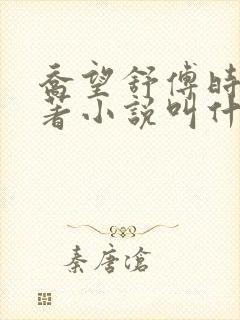 喬望舒傅時
著小說叫什
秦唐滄